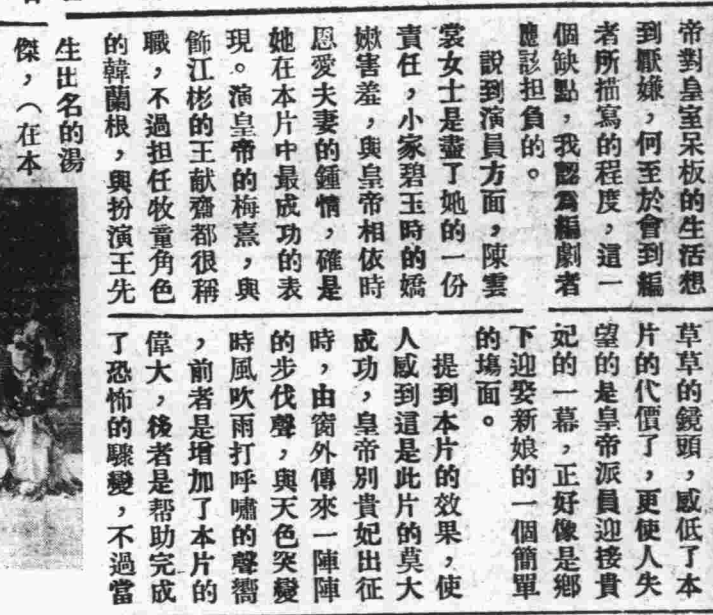 帝對皇室呆板的生活想
到厭嫌，何至於會到編
者所描寫的程度，這一
個缺點，我認為編劇者
應該担負的。
說到演員方面，陳雲
裳女士是盡了她的一份
責任，小家碧玉時的嬌
嫩害羞，與皇帝相依時
恩愛夫妻的鍾情，確是
她在本片中最成功的表
現。演皇帝的梅熹，與
飾江彬的王献齋都很稱
職，不過担任牧童角色
的韓蘭根，與扮演王先
生出名的湯
傑，（在本
草草的鏡頭，感低了本
片的代價了，更使人失
望的是皇帝派員迎接貴
妃的一幕，正好像是鄉
下迎娶新娘的一個簡單
的塲面。
提到本片的效果，使
人感到這是此片的莫大
成功，皇帝別貴妃出征
時，由窗外傳來一陣陣
的步伐聲，與天色突變
時風吹雨打呼嘯的聲響
，前者是增加了本片的
偉大，後者是帮助完成
了恐怖的驟變，不過當